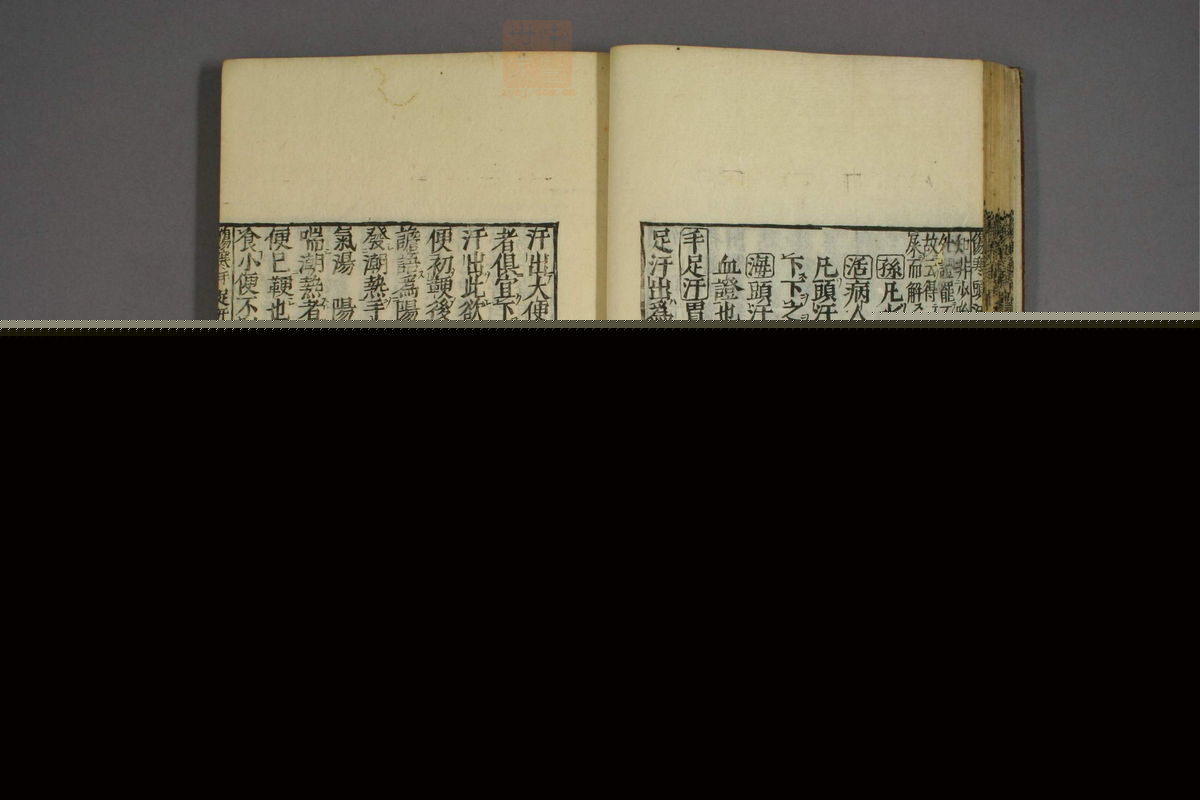 傷寒頭
如非少陰
外證罷
故云得
屎而解
孫凡
活病人
凡頭汗
下下之
海頭汗
血證也
手足汗胃
足汗出爲
汗出大便
者俱宜下
汗出此欲
便初鞕後
譫語爲陽
發潮熱手
氣湯 陽
喘潮熱者
便已鞕也
食小便不
傷寒汗